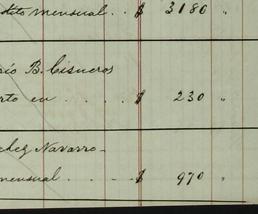 dito mensual .. $ 3186 "
sio B. Cisneros
rto en .... $ 230 "
chez Navarro-
mensual .... $ 970 "